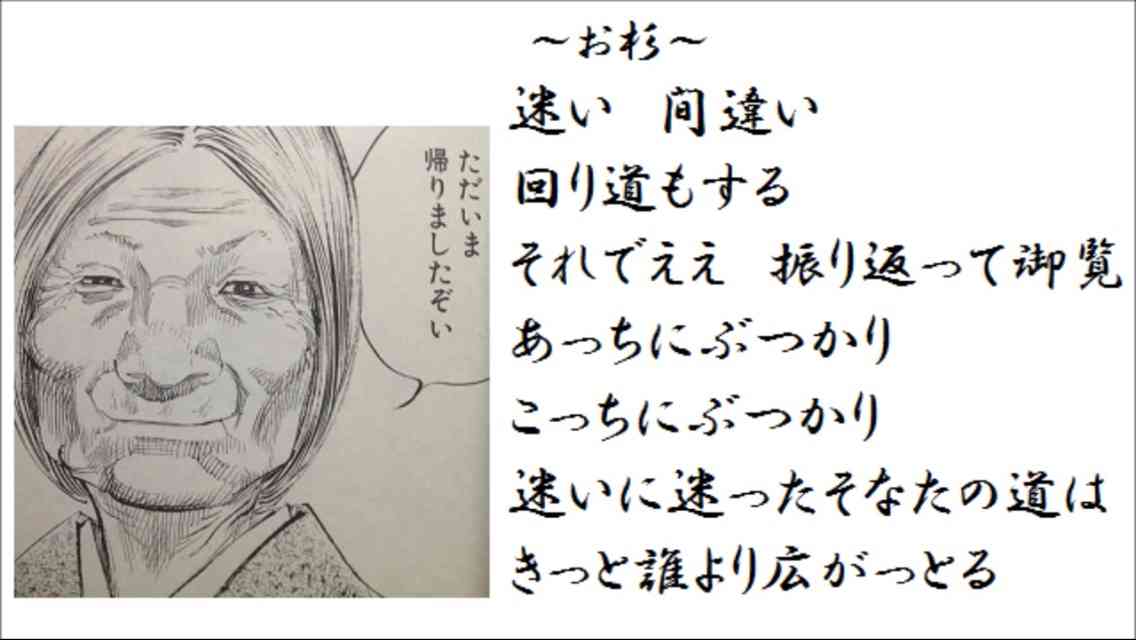 ただいま
帰りましたぞい
～お杉～
迷い　間違い
回り道もする
それでええ　振り返って御覧
あっちにぶつかり
こっちにぶつかり
迷いに迷ったそなたの道は
きっと誰より広がっとる